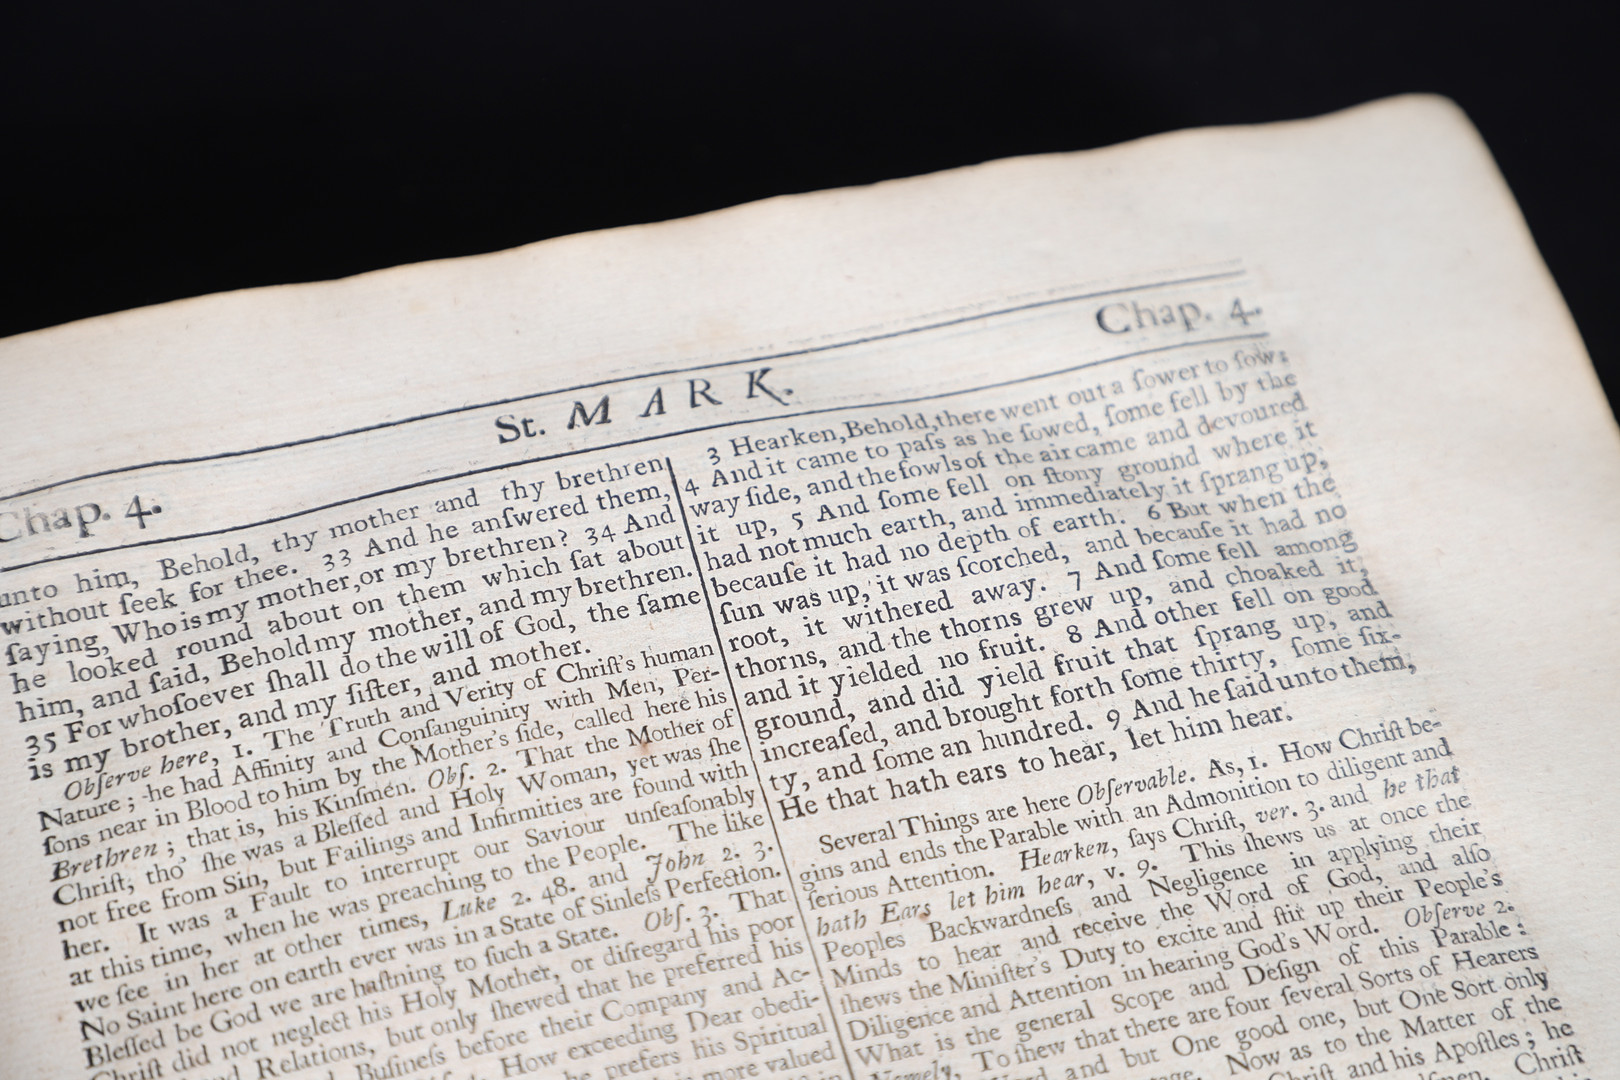 Chap. 4.
St. MARK.
Chap. 4.
unto him, Behold, thy mother and thy brethren
without ſeek for thee. 33 And he anſwered them,
ſaying, Who is my mother, or my brethren? 34 And
he looked round about on them which ſat about
him, and ſaid, Behold my mother, and my brethren.
35 For whoſoever ſhall do the will of God, the ſame
is my brother, and my ſiſter, and mother.
Obſerve here, 1. The Truth and Verity of Chriſt's human
Nature; he had Affinity and Conſanguinity with Men, Per-
ſons near in Blood to him by the Mother's ſide, called here his
Brethren; that is, his Kinſmen. Obſ. 2. That the Mother of
Chriſt, tho' ſhe was a Bleſſed and Holy Woman, yet was ſhe
not free from Sin, but Failings and Infirmities are found with
her. It was a Fault to interrupt our Saviour unſeaſonably
at this time, when he was preaching to the People. The like
we ſee in her at other times, Luke 2. 48. and John 2. 3.
No Saint here on earth ever was in a State of Sinleſs Perfection.
Bleſſed be God we are haſtning to ſuch a State. Obſ. 3. That
Chriſt did not neglect his Holy Mother, or diſregard his poor
Relations, but only ſhewed that he preferred his
Buſineſs before their Company and Ac-
How exceeding Dear obedi-
he prefers his Spiritual
more valued
3 Hearken, Behold, there went out a ſower to ſow:
4 And it came to paſs as he ſowed, ſome fell by the
way ſide, and the fowls of the air came and devoured
it up, 5 And ſome fell on ſtony ground where it
had not much earth, and immediately it ſprang up,
becauſe it had no depth of earth. 6 But when the
ſun was up, it was ſcorched, and becauſe it had no
root, it withered away. 7 And ſome fell among
thorns, and the thorns grew up, and choaked it,
and it yielded no fruit. 8 And other fell on good
ground, and did yield fruit that ſprang up, and
increaſed, and brought forth ſome thirty, ſome ſix-
ty, and ſome an hundred. 9 And he ſaid unto them,
He that hath ears to hear, let him hear.
Several Things are here Obſervable. As, 1. How Chriſt be-
gins and ends the Parable with an Admonition to diligent and
ſerious Attention. Hearken, ſays Chriſt, ver. 3. and he that
hath Ears let him hear, v. 9. This ſhews us at once the
Peoples Backwardneſs and Negligence in applying their
Minds to hear and receive the Word of God, and alſo
ſhews the Miniſter's Duty to excite and ſtir up their People's
Diligence and Attention in hearing God's Word. Obſerve 2.
What is the general Scope and Deſign of this Parable:
Namely, To ſhew that there are four ſeveral Sorts of Hearers
and but One good one, but One Sort only
Now as to the Matter of the
Chriſt and his Apoſtles; he
Chriſt